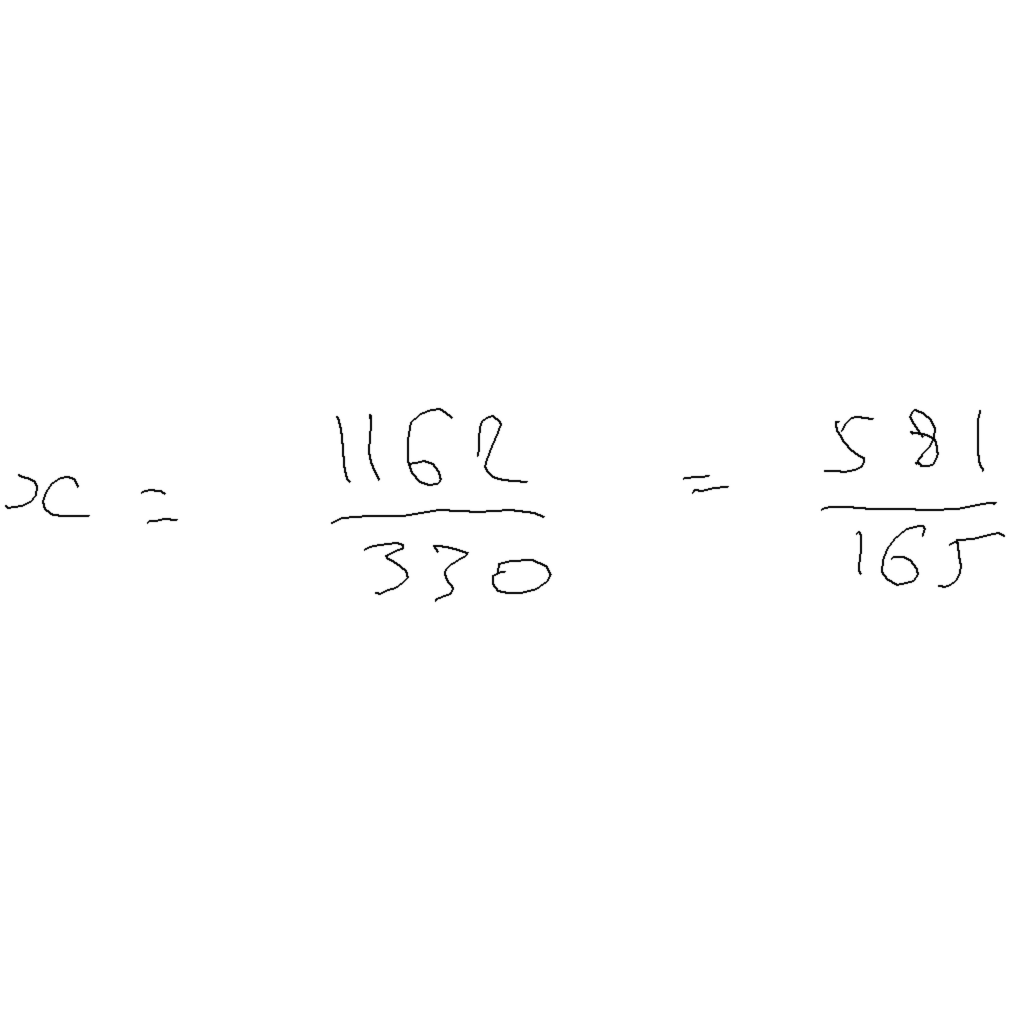 x = 1162/330 = 581/165